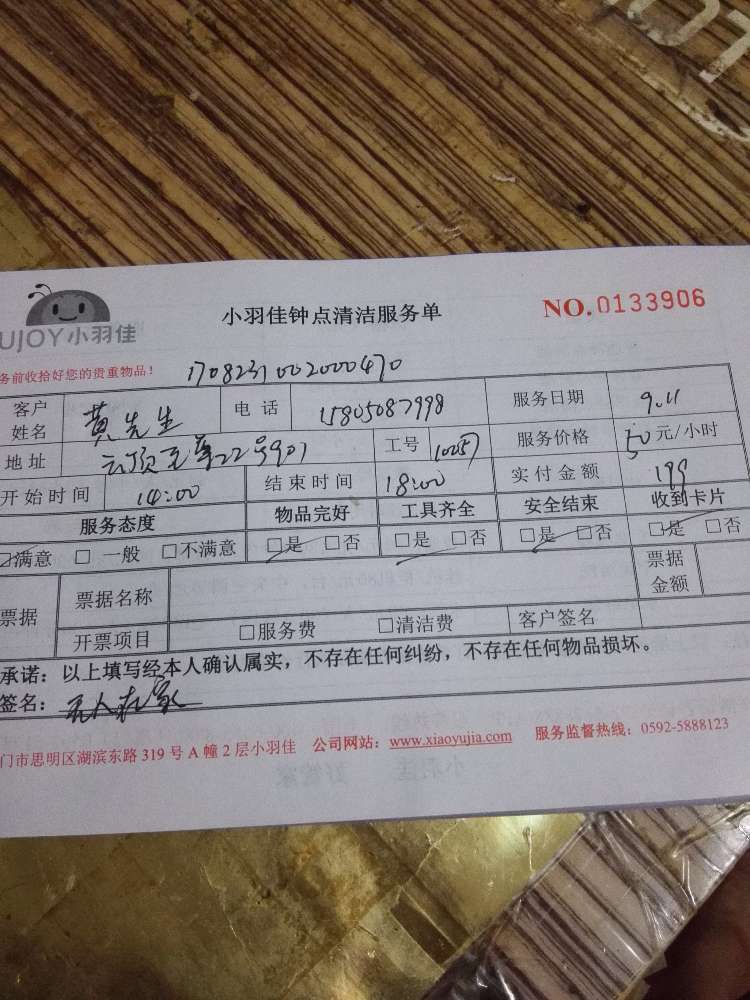 小羽佳钟点清洁服务单 NO.0133906
UJOY小羽佳
务前收拾好您的贵重物品! 1708231002000470
客户姓名 黄先生 电话 15805087998 服务日期 9.11
地址 云顶至尊22号901 工号 服务价格 50元/小时
开始时间 14:00 结束时间 18:00 实付金额 199
服务态度 物品完好 工具齐全 安全结束 收到卡片
☑满意 □一般 □不满意 ☑是 □否 ☑是 □否 ☑是 □否 ☑是 □否
票据 票据名称 票据金额
开票项目 □服务费 □清洁费 客户签名
承诺:以上填写经本人确认属实,不存在任何纠纷,不存在任何物品损坏。
签名:无人在家
门市思明区湖滨东路319号A幢2层小羽佳 公司网站:www.xiaoyujia.com 服务监督热线:0592-5888123